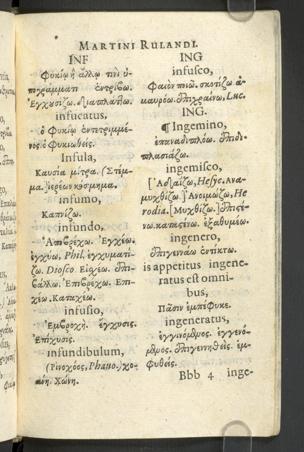 MARTINI RULANDI.
INF
Φυκίω ἢ ἄλλῳ τινὶ ὑ-
πογράμματι ἐντρίβω.
Ἐγχυσίζω.
infucatus,
ὁ Φυκίῳ ἐντετριμμέ-
νος. ὁ Φυκιωθείς.
Insula,
Καυσία μίτρα. (Στίμ-
μα.) ἱερέων κόσμημα.
infumo,
Καπνίζω.
infundo,
Ἐπιβρέχω. Ἐγχέω.
ἐγχύω, Phil. ἐγχυματί-
ζω. Diosco. Εἰσχέω.
βάλλω. Ἐπιβρέχω. Ἐπι-
χέω. Καταχέω.
infusio,
Ἐμβροχή. ἔγχυσις.
Ἐπίχυσις.
infundibulum,
(Ρινοχόος, Phano.) χο-
άνη. Χώνη.
ING
infusco,
Φαιὸν ποιῶ. σκοτίζω. ἀ-
μαυρόω. Luc.
ING.
¶ Ingemino,
ἐπαναδιπλόω. Ἐπιδι-
πλασιάζω.
ingemisco,
Hesyc. Ανα-
μυχθίζω.] Ανοιμώζω, He
rodia. [Μυχθίζω.] Ἐπιςέ-
νω.
ingenero,
Ἐπιγεννάω ἐντίκτω.
is appetitus ingene-
ratus est omni-
bus,
Πᾶσιν ἐμπέφυκε.
ingeneratus,
ἐγγινόμενος. ἐγγενό-
μενος. Ἐπιγεννηθείς. ἐμ-
φυθείς.
Bbb 4 inge-